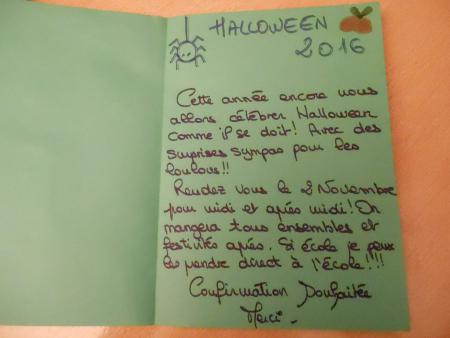 HALLOWEEN
2016
Cette année encore nous
allons célébrer Halloween
comme il se doit! Avec des
surprises sympas pour les
loulous!!
Rendez vous le 2 Novembre
pour midi et après midi! On
mangera tous ensembles et
festivités après. Si école je peux
les prendre direct à l'école!!!!
Confirmation Souhaitée
Merci.